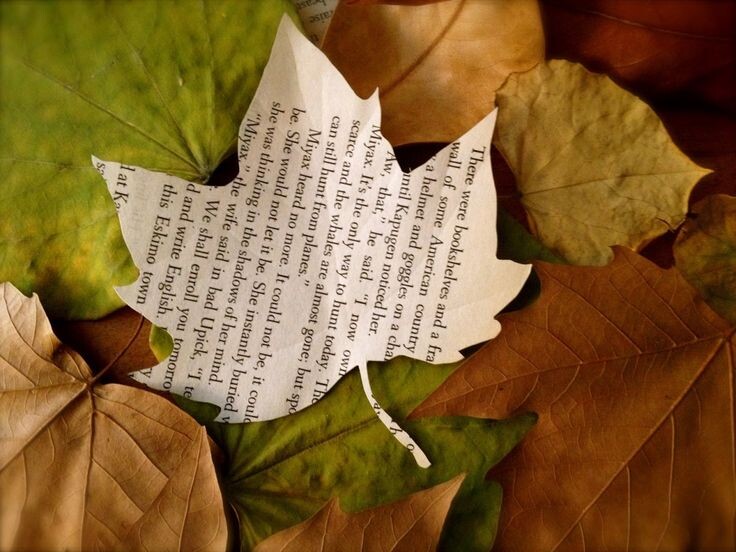 There were bookshelves and a fra
wall of some American country
a helmet and goggles on a cha
and Kapugen noticed her.
Aw, that,” he said. “I now own
Miyax. It's the only way to hunt today. The
scarce and the whales are almost gone; but spo
can still hunt from planes.”
Miyax heard no more. It could not be, it could
be. She would not let it be. She instantly buried w
she was thinking in the shadows of her mind.
“Miyax,” the wife said in bad Upick, “I te
We shall enroll you tomorro
d and write English,
this Eskimo town
l at Ka